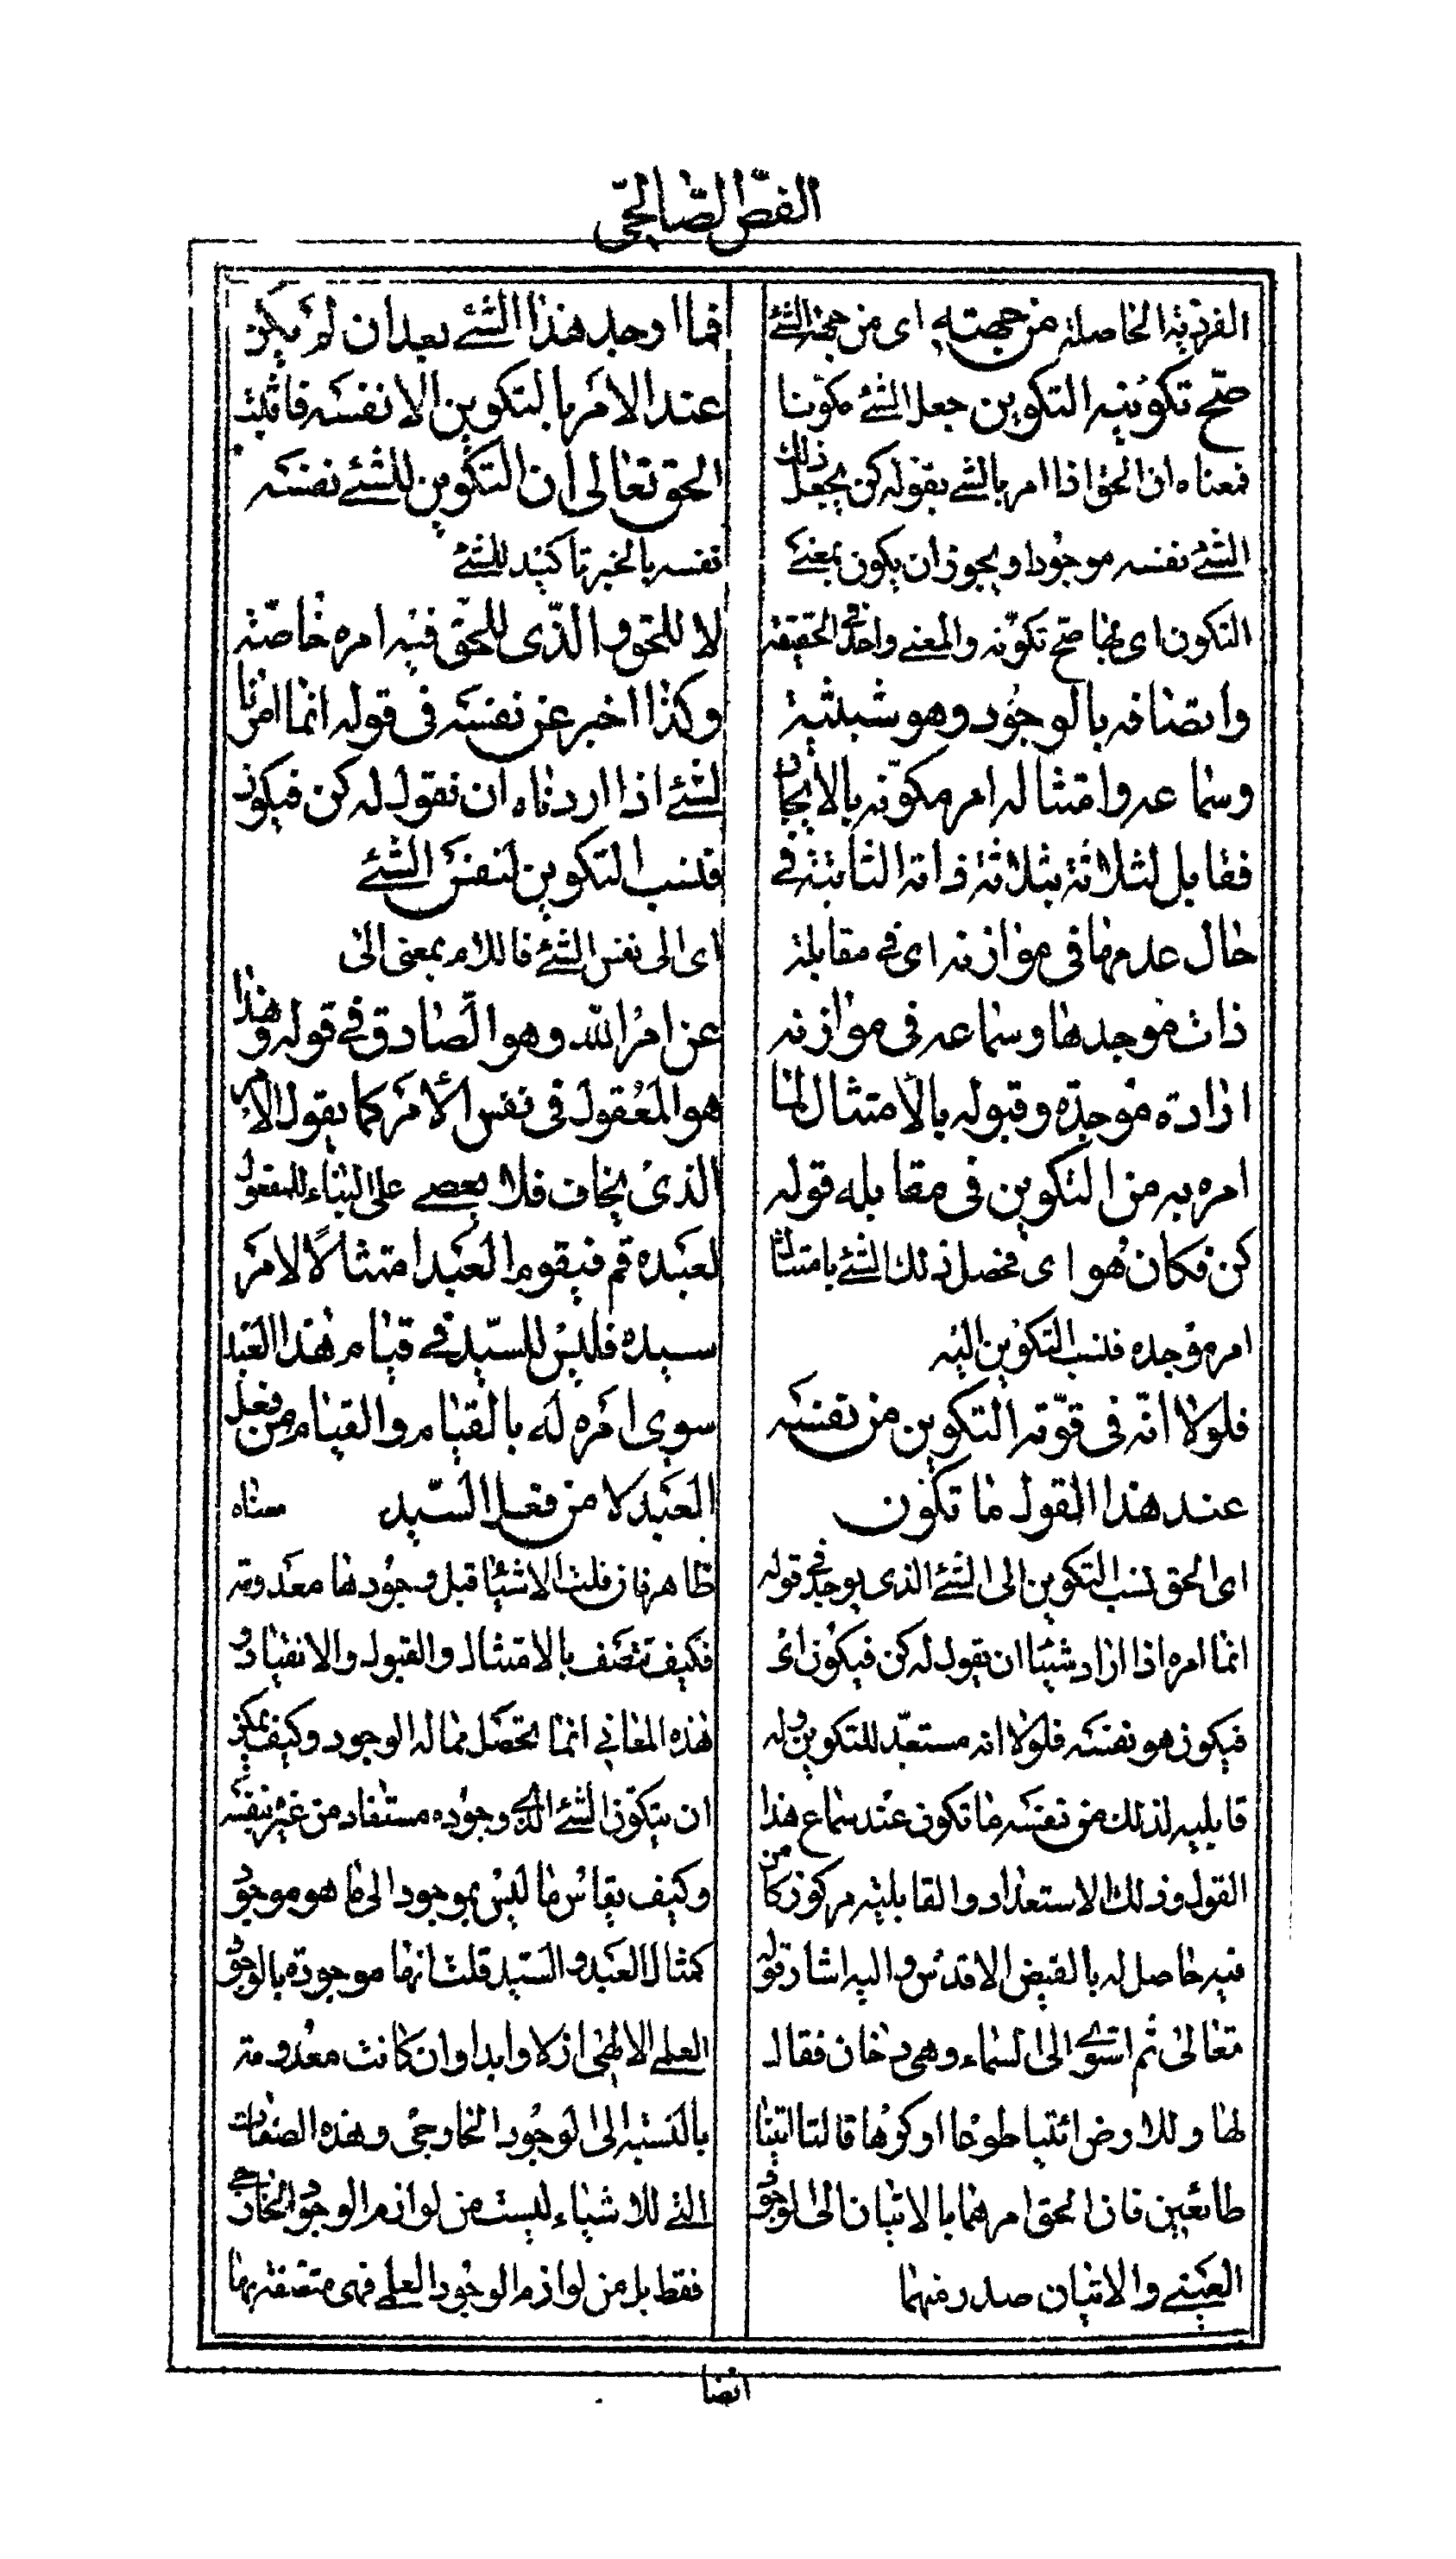 الفصّ الصّالحّی
الفردیة الحاصلة من جهته ای من جهة الشئ
صحّ تكوینه التكوین جعل الشئ مكوّنا
فمعناه ان الحق اذا امر بالشے بقوله كن یجعل ذلك
الشئ نفسه موجودا ویجوز ان یكون بمعنے
التكون ای لها صحّ تكوّنه والمعنے واحد فی الحقیقة
واتصافه بالوجود وهو شیئیة
وسماعه وامتثاله امر مكوّنه بالایجاد
فقابل لثلاثة بثلاثة ذاته الثابتة فے
حال عدمها فی موازنه ای فے مقابلة
ذات موجدها وسماعه فی موازنه
ارادة موجدّه وقبوله بالامتثال لما
امره به من التكوین فی مقابله قوله
كن فكان هو ای فحصل ذلك الشئ بامتثال
امر موجده فنسب التكوین الیه
فلولا انّه فی قوّته التكوین من نفسه
عند هذا القول ما تكون
ای الحق نسب التكوین الی الشئ الذی یوجد فی قوله
انما امره اذا اراد شیئا ان یقول له كن فیكون ای
فیكون هو نفسه فلولا انه مستعدّ للتكوین وله
قابلیه لذلك من نفسه ما تكون عند سماع هذا
القول وذلك الاستعداد والقابلیة مركوز كامن
فیه حاصل له بالفیض الاقدس والیه اشار قوله
تعالی ثم استوی الی السماء وهی دخان فقال
لها وللارض ائتیا طوعا او كرها قالتا اتینا
طائعین فان الحق امرهما بالاتیان الی الوجود
العینے والاتیان صدر منهما
فما اوجد هذا الشئ بعد ان لم یكن
عند الامر بالتكوین الا نفسه فاثبت
الحق تعالی ان التكوین للشئ نفسه
نفسه بالخبر تاكید للشئ
لا للحق والذّی للحّق فیه امره خاصّة
وكذا اخبر عن نفسه فی قوله انما امرنا
لشئ اذا اردناه ان نقول له كن فیكون
فنسب التكوین لنفس الشئ
ای الی نفس الشئ فاللام بمعنی الی
عن امر الله وهو الصّادق فے قوله وهذا
هو المعقول فی نفس الأمر كما یقول الآمر
الذی یخاف فلا یعصے علی البناء للمفعول
لعبده قم فیقوم العبد امتثالًا لامر
سیده فلیس للسّید فے قیام هذا العبد
سوی امره له بالقیام والقیام من فعل
العبد لا من فعل السّید معناه
ظاهر فان قلت الاشیا قبل وجودها معدومة
فكیف تتصف بالامتثال والقبول والانقیاد و
هذه المعانی انما تحصل مما له الوجود وكیف یمكن
ان یتكون الشئ الذی وجوده مستفاد من غیره بنفسه
وكیف یقاس ما لیس بموجود الی ما هو موجود
كمثال العبد والسّید قلت انها موجودة بالوجود
العلمے الالهی ازلا وابدا وان كانت معدومة
بالنسبة الی الوجود الخارجی وهذه الصفات
التے للاشیاء لیست من لوازم الوجود الخارجے
فقط بل من لوازم الوجود العلمے فهی متصفة بها
ایضا